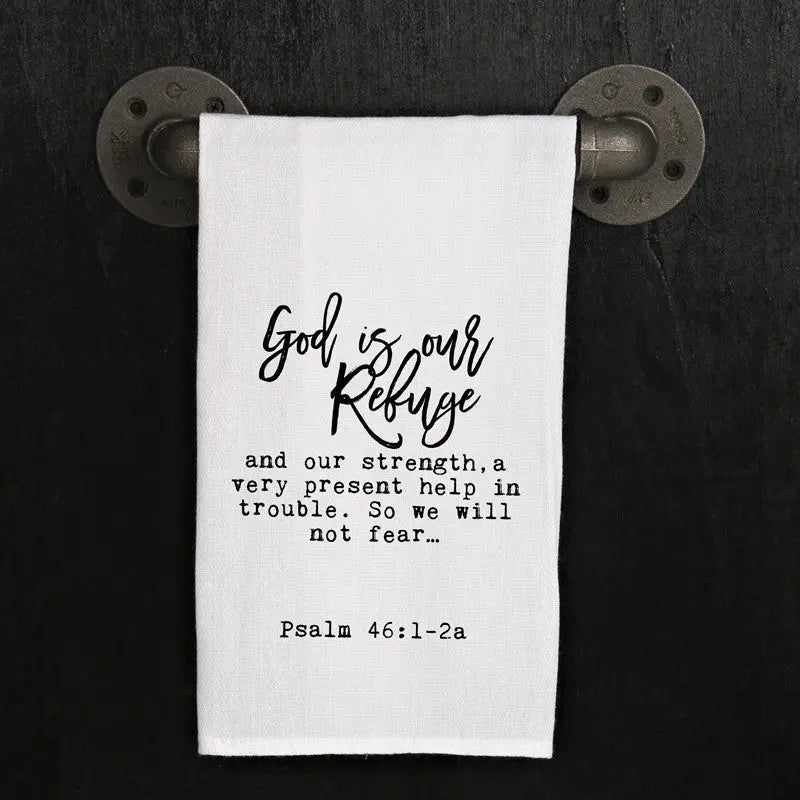 God is our
Refuge
and our strength,a
very present help in
trouble. So we will
not fear…
Psalm 46:1-2a